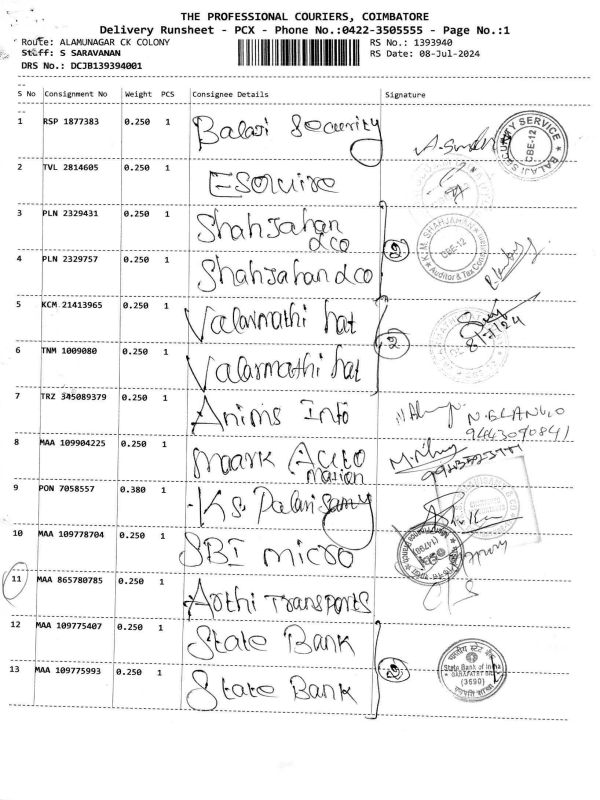 THE PROFESSIONAL COURIERS, COIMBATORE
Delivery Runsheet - PCX - Phone No.:0422-3505555 - Page No.:1
Route: ALAMUNAGAR CK COLONY
RS No.: 1393940
Staff: S SARAVANAN
RS Date: 08-Jul-2024
DRS No.: DCJB139394001
S No Consignment No Weight PCS Consignee Details Signature
1 RSP 1877383 0.250 1 Balaji Security
BALAJI SECURITY SERVICE CBE-12
2 TVL 2814605 0.250 1 Esquire
3 PLN 2329431 0.250 1 Shah Jahan & co
4 PLN 2329757 0.250 1 Shah Jahan & co 2
K.M. SHAHJAHAN CBE-12 Auditor & Tax
5 KCM 21413965 0.250 1 Valarmathi hat
8/7/24
6 TNM 1009080 0.250 1 Valarmathi hat 2
7 TRZ 345089379 0.250 1 Anims Info
N. ELANGO
9443090841
8 MAA 109904225 0.250 1 Maark Auto
marion
9 PON 7058557 0.380 1 K.S. Palanisamy
10 MAA 109778704 0.250 1 SBI micro
11 MAA 865780785 0.250 1 Arthi Transports
12 MAA 109775407 0.250 1 State Bank
13 MAA 109775993 0.250 1 State Bank 2
भारतीय स्टेट बैंक
State Bank of India
(3690)